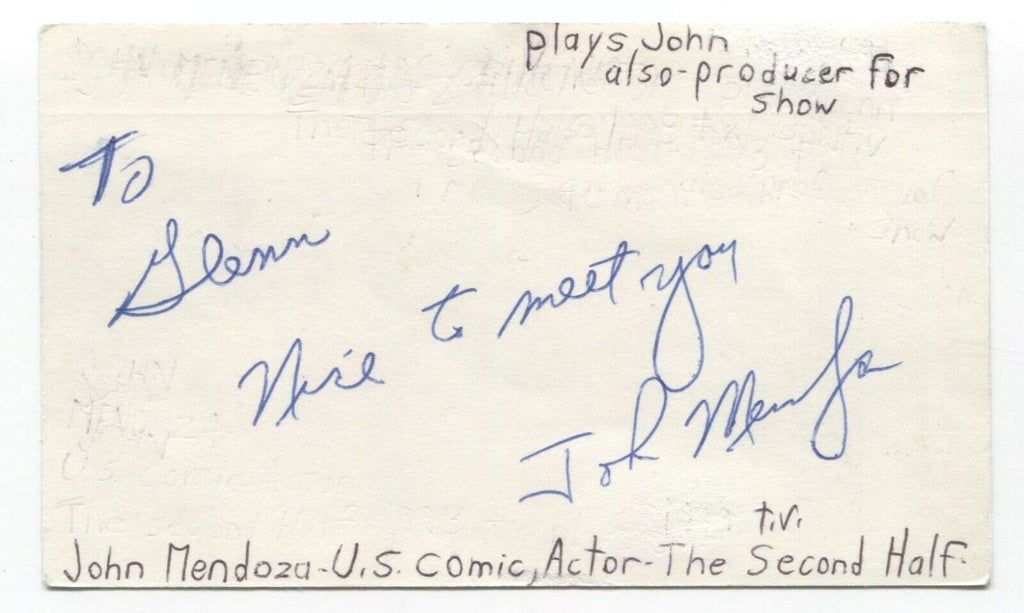 plays John
also-producer for
show
To
Glenn
Nice to meet you
John Mendoza
t.v.
John Mendoza-U.S. comic, Actor-The Second Half.